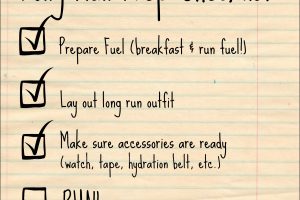 Prepare Fuel (breakfast & run fuel!)
Lay out long run outfit
Make sure accessories are ready
(watch, tape, hydration belt, etc.)
RUN!